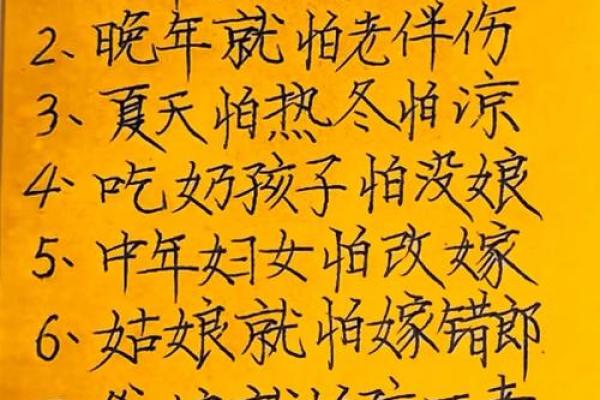 2、晚年就怕老伴伤
3、夏天怕热冬怕凉
4、吃奶孩子怕没娘
5、中年妇女怕改嫁
6、姑娘就怕嫁错郎